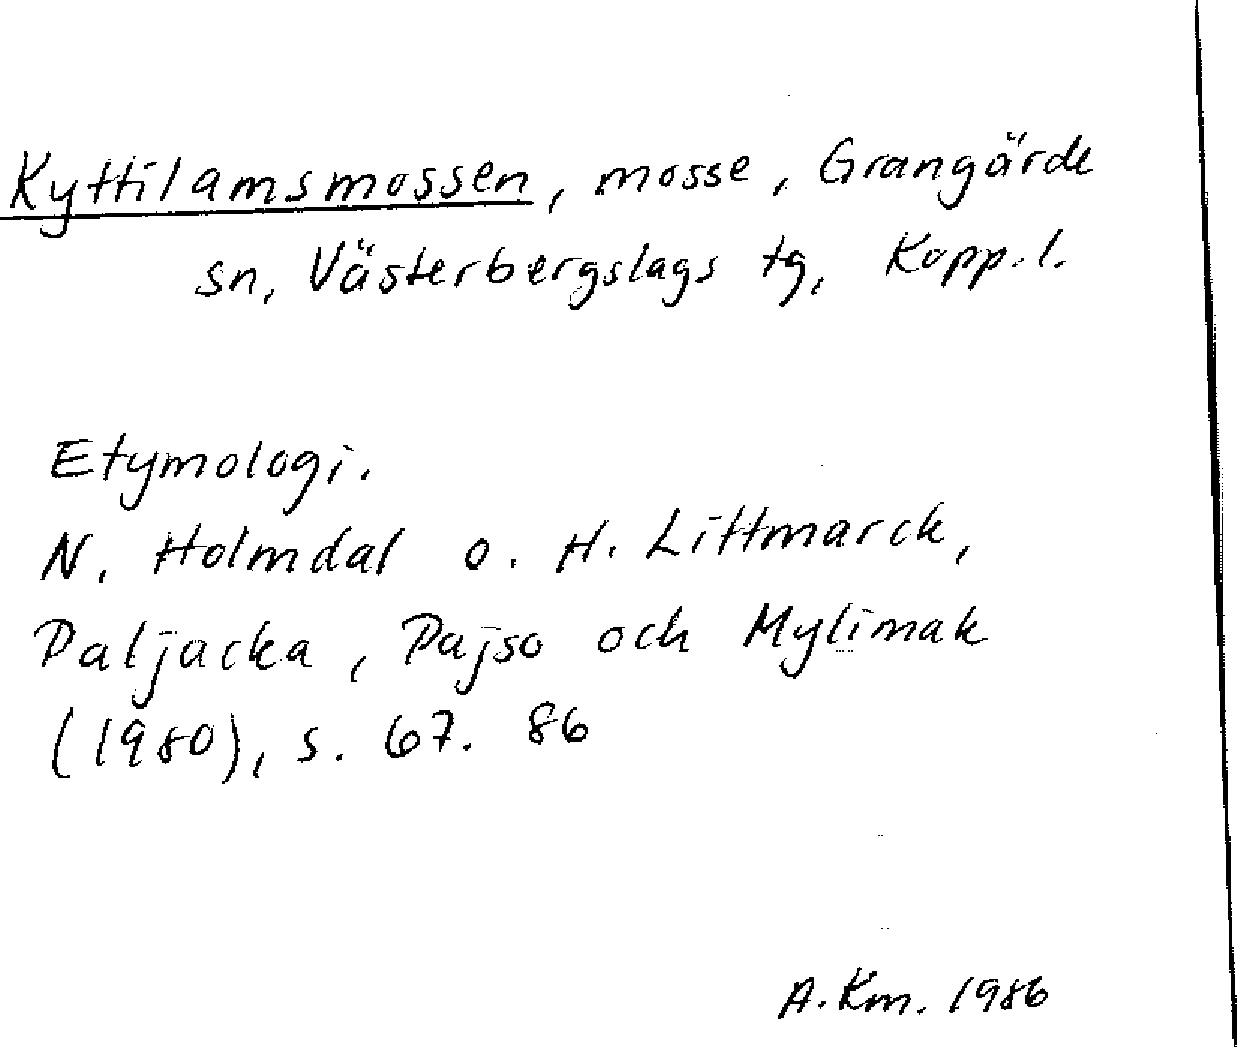 Kyttilamsmossen, mosse, Grangärde
sn, Västerbergslags tg, Kopp.l.
Etymologi.
N. Holmdal o. H. Littmarck,
Paljacka, Pajso och Mylimak
(1980), s. 67. 86
A.Km. 1986